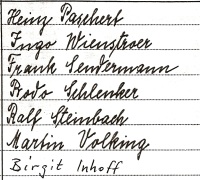 Heinz Paschert
Ingo Wienstroer
Frank Sendermann
Bodo Schlenker
Ralf Steinbach
Martin Volking
Birgit Inhoff